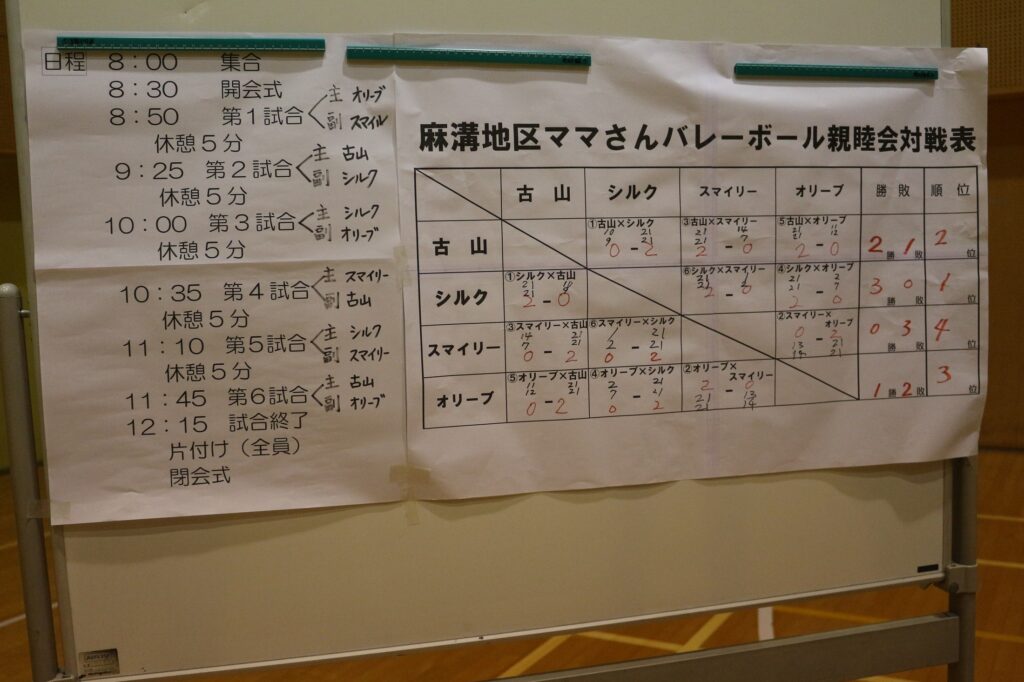 日程 8：00 集合
8：30 開会式
8：50 第1試合 主 オリーブ
副 スマイル
休憩5分
9：25 第2試合 主 古山
副 シルク
休憩5分
10：00 第3試合 主 シルク
副 オリーブ
休憩5分
10：35 第4試合 主 スマイリー
副 古山
休憩5分
11：10 第5試合 主 シルク
副 スマイリー
休憩5分
11：45 第6試合 主 古山
副 オリーブ
12：15 試合終了
片付け（全員）
閉会式
麻溝地区ママさんバレーボール親睦会対戦表
古山 シルク スマイリー オリーブ 勝敗 順位
古山 ①古山×シルク ③古山×スマイリー ⑤古山×オリーブ
10 21 21 14 21 11
9 21 21 7 21 12
0 - 2 2 - 0 2 - 0 2勝 1敗 2位
シルク ①シルク×古山 ⑥シルク×スマイリー ④シルク×オリーブ
21 21 21 2
21 21 21 7
2 - 0 2 - 0 2 - 0 3勝 0敗 1位
スマイリー ③スマイリー×古山 ⑥スマイリー×シルク ②スマイリー×オリーブ
14 21 21 0 - 2
7 21 2 21 13 21
0 - 2 0 - 2 21 0勝 3敗 4位
オリーブ ⑤オリーブ×古山 ④オリーブ×シルク ②オリーブ×スマイリー
11 21 2 21 2 - 0
12 21 7 21 21 13
0 - 2 0 - 2 21 14 1勝 2敗 3位